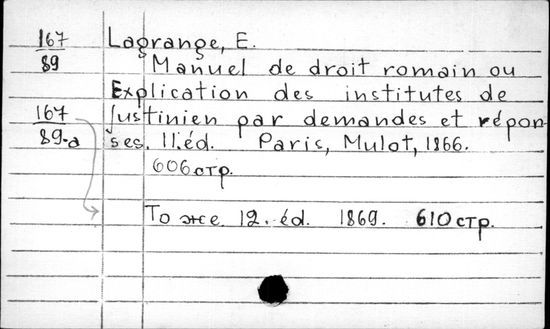 167 Lagrange, E.
89 Manuel de droit romain ou
Explication des institutes de
167 Justinien par demandes et répon-
89-a ses. 11.éd. Paris, Mulot, 1866.
606 стр.
То же. 12. éd. 1869. 610 стр.